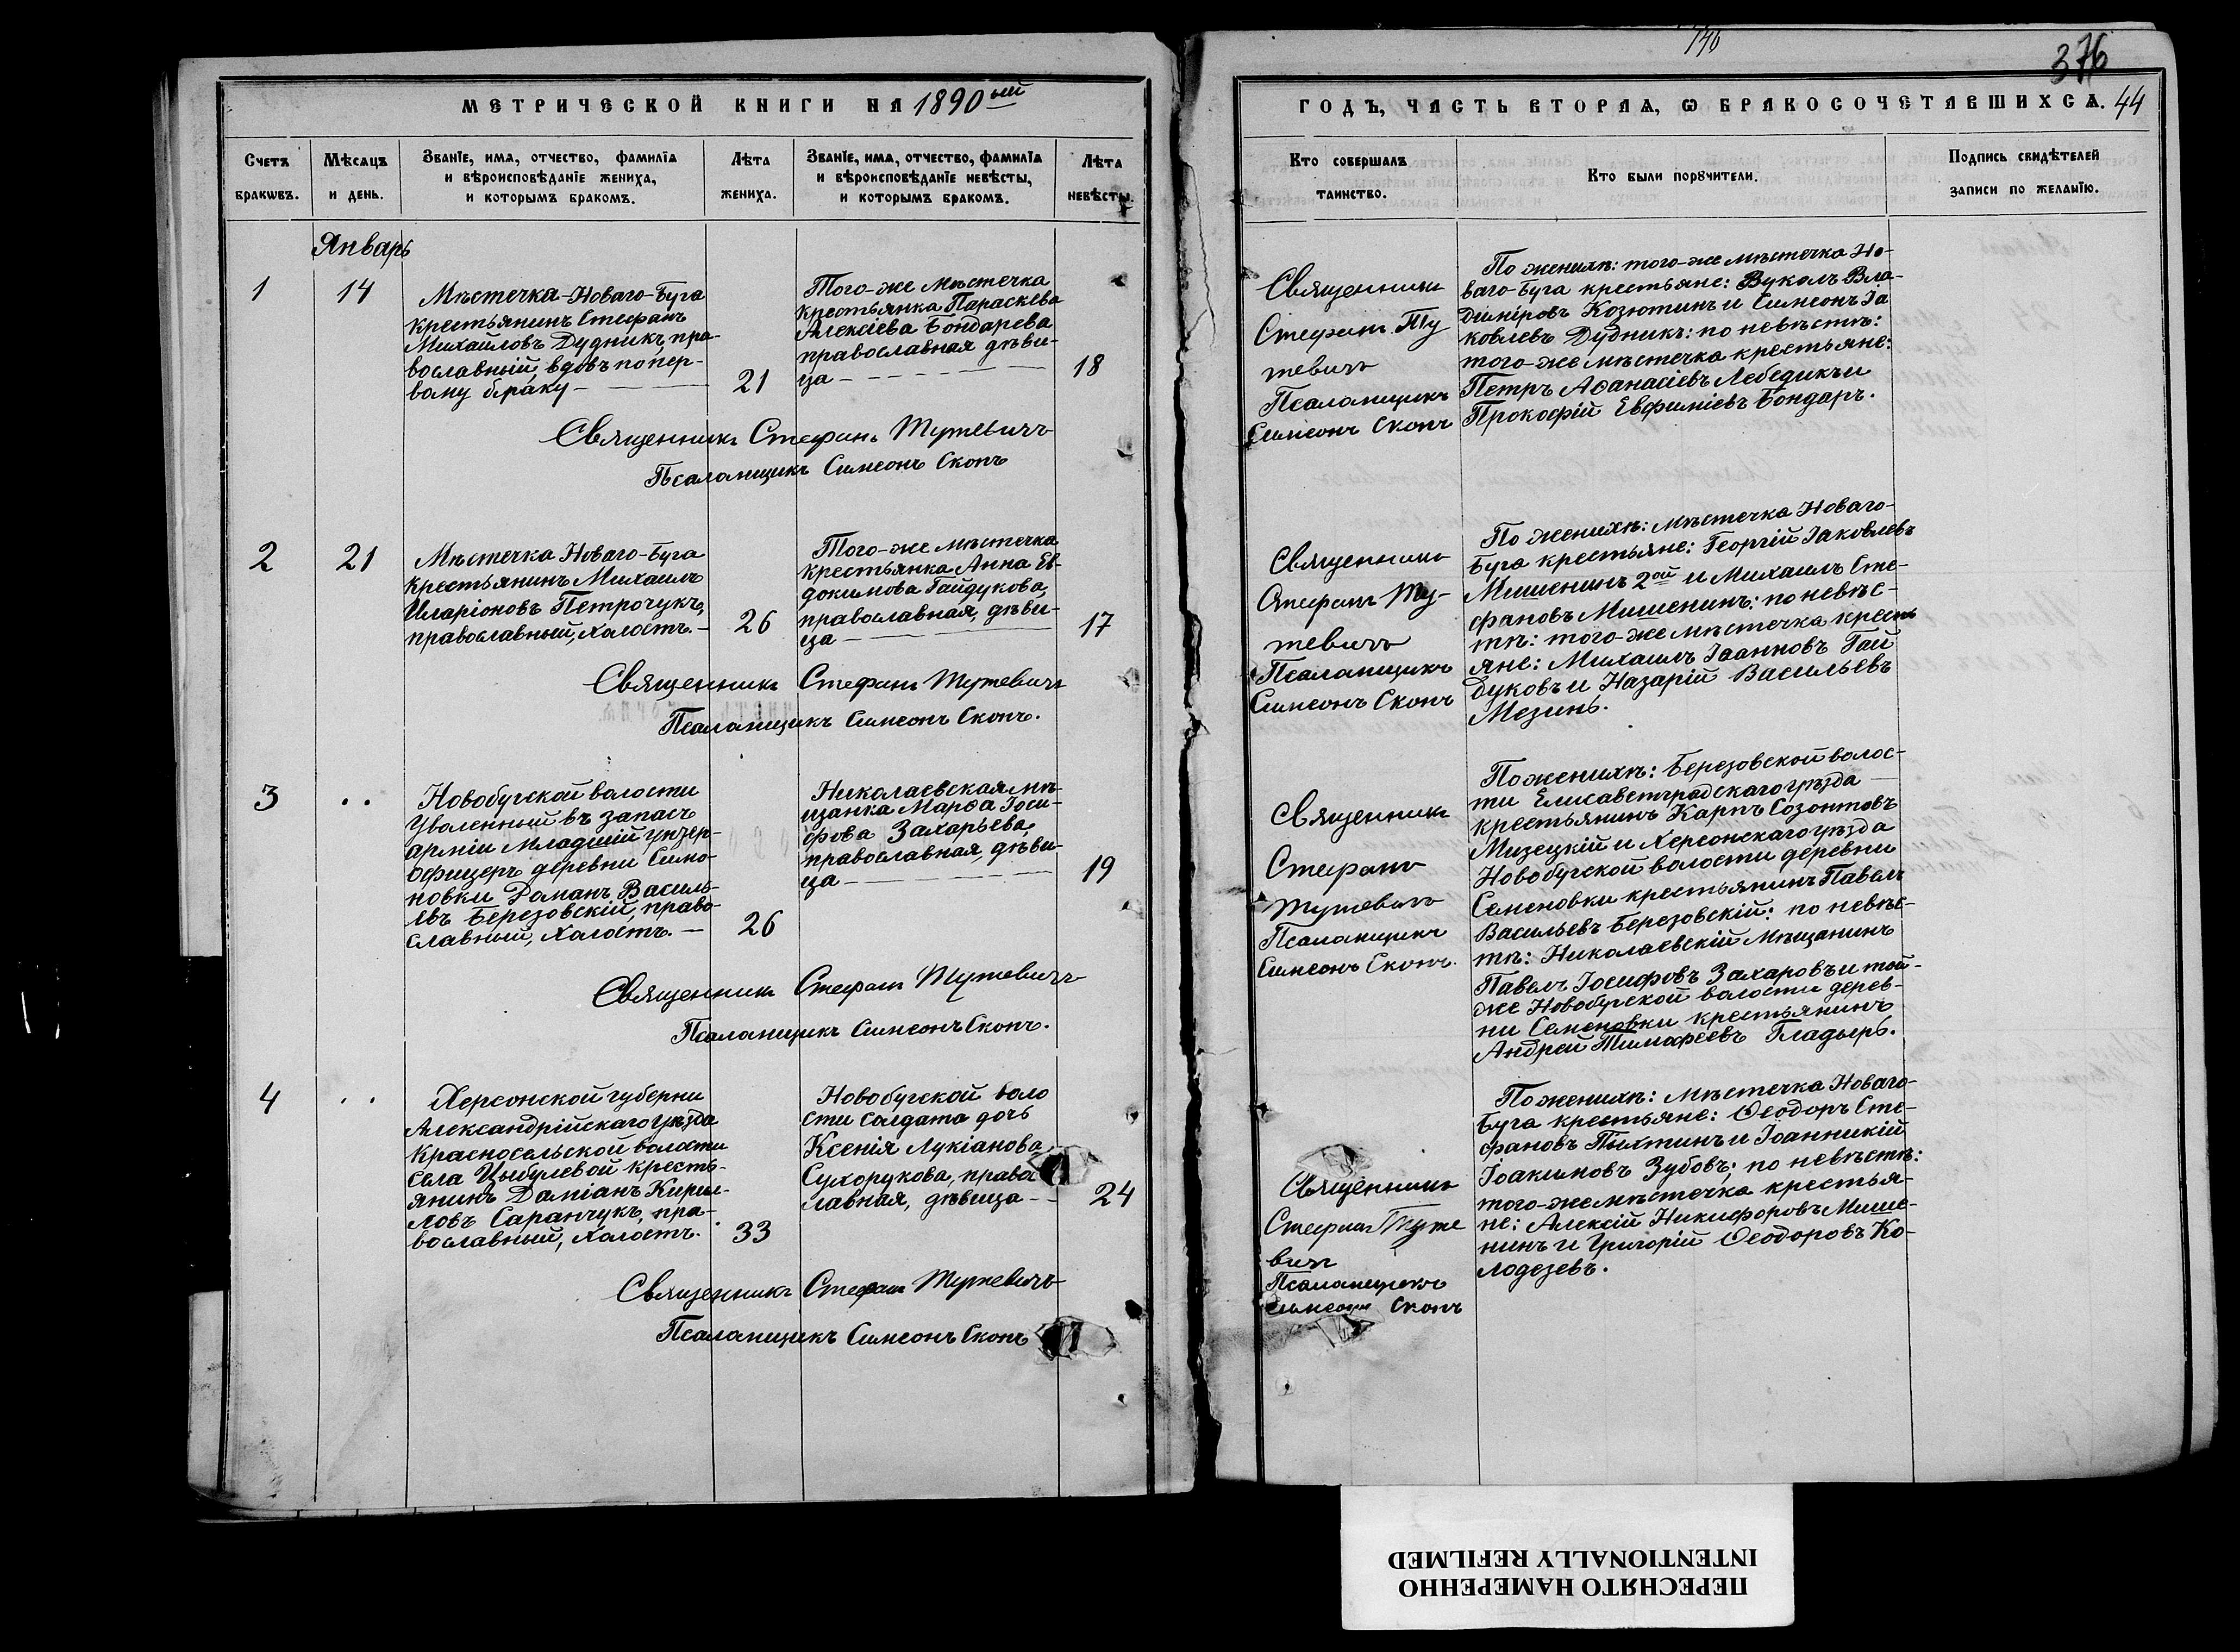 МЕТРИЧЕСКОЙ КНИГИ НА 1890ый
Счетъ браковъ.
Мѣсяцъ и день.
Званіе, имя, отчество, фамилія
и вѣроисповѣданіе жениха,
и которымъ бракомъ.
Лѣта
жениха.
Званіе, имя, отчество, фамилія
и вѣроисповѣданіе невѣсты,
и которымъ бракомъ.
Лѣта
невѣсты.
Январь
1
14
Мѣстечка Новаго-Буга
крестьянинъ Стефанъ
Михайловъ Дудникъ, пра-
вославный, вдовъ по пер-
вому браку
21
Того-же мѣстечка
крестьянка Параскева
Алексіева Бондарева
православная дѣви-
ца
18
Священникъ Стефанъ Тутевичъ
Псаломщикъ Симеонъ Скопъ
2
21
Мѣстечка Новаго-Буга
крестьянинъ Михаилъ
Иларіоновъ Петрочукъ,
православный, холостъ.
26
Того-же мѣстечка
крестьянка Анна Ев-
докимова Гайдукова,
православная, дѣви-
ца
17
Священникъ Стефанъ Тутевичъ
Псаломщикъ Симеонъ Скопъ.
3
. .
Новобугской волости
уволенный въ запасъ
арміи младшій унтер-
офицеръ деревни Симо-
новки Романъ Василь-
евъ Березовскій, право-
славный, холостъ.
26
Николаевская мѣ-
щанка Марѳа Іоси-
фова Захарьева,
православная, дѣви-
ца
19
Священникъ Стефанъ Тутевичъ
Псаломщикъ Симеонъ Скопъ.
4
. .
Херсонской губерни
Александрійскаго уѣзда
Красносельской волости
села Цыбулевой кресть-
янинъ Даміанъ Кирил-
ловъ Саранчукъ, пра-
вославный, холостъ.
33
Новобугской воло
сти солдата дочь
Ксенія Лукіанова
Сухорукова, правос
лавная, дѣвица
24
Священникъ Стефанъ Тутевичъ
Псаломщикъ Симеонъ Скопъ
146
376
ГОДЪ, ЧАСТЬ ВТОРАЯ, Ѡ БРАКОСОЧЕТАВШИХСЯ. 44
Кто совершалъ
таинство.
Кто были поручители.
Подпись свидѣтелей
записи по желанію.
Священникъ
Стефанъ Ту
тевичъ
Псаломщикъ
Симеонъ Скопъ
По женихѣ: того-же мѣстечка Но-
ваго-Буга крестьяне: Вуколъ Вла-
диміровъ Козютинъ и Симеонъ Іа
ковлевъ Дудникъ: по невѣстѣ:
того-же мѣстечка крестьяне:
Петръ Аѳанасіевъ Лебедикъ и
Прокофій Евфиміевъ Бондарь.
Священникъ
Стефанъ Ту-
тевичъ
Псаломщикъ
Симеонъ Скопъ
По женихѣ: мѣстечка Новаго-
Буга крестьяне: Георгій Іаковлевъ
Мишенинъ 2ой и Михаилъ Сте-
фановъ Мишенинъ: по невѣс-
тѣ: того-же мѣстечка кресть
яне: Михаилъ Іоанновъ Гай
дуковъ и Назарій Васильевъ
Мезинъ.
Священникъ
Стефанъ
Тутевичъ
Псаломщикъ
Симеонъ Скопъ.
По женихѣ: Березовской волос-
ти Елисаветградскаго уѣзда
крестьянинъ Карпъ Созонтовъ
Мизецкій и Херсонскаго уѣзда
Новобугской волости деревни
Семеновки крестьянинъ Павелъ
Васильевъ Березовскій: по невѣс-
тѣ: Николаевскій мѣщанинъ
Павелъ Іосифовъ Захаровъ и той-
же Новобугской волости дерев-
ни Семеновки крестьянинъ
Андрей Тимофеевъ Гладырь.
Священникъ
Стефанъ Туте
вичъ
Псаломщикъ
Симеонъ Скопъ
По женихѣ: мѣстечка Новаго-
Буга крестьяне: Ѳеодоръ Сте-
фановъ Пыхтинъ и Іоанникій
Іоакимовъ Зубовъ; по невѣстѣ:
того-же мѣстечка крестья-
не: Алексій Никифоровъ Мише-
нинъ и Григорій Ѳеодоровъ Ко-
лодезевъ.
ПЕРЕСНЯТО НАМЕРЕННО
INTENTIONALLY REFILMED